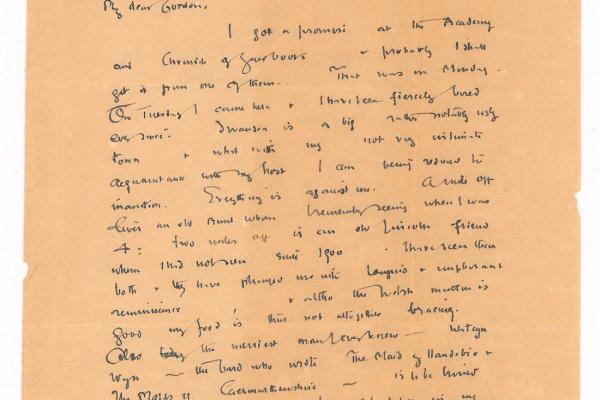 My dear Gordon,
I got a promise at the Academy
and Chronicle of four books & probably I shall
get it from one of them. That was on Monday.
On Tuesday I came here & I have been fiercely bored
ever since. Swansea is a big rather notably ugly
town & what with my not very intimate
acquaintance with my host I am being reduced to
inanition. Everything is against me. A mile off
lives an old Aunt whom I remember seeing when I was
4: two miles off is an old Lincoln friend
whom I had not seen since 1900. I have seen them
both & they have plunged me into languid &
reminiscence & altho the Welsh mutton is
good my food is thus not altogether bracing.
Also the merriest man I ever knew — Watcyn
Wyn — the bard who wrote The Maid of Llandebie &
The Maids of Caermarthenshire — is to be buried